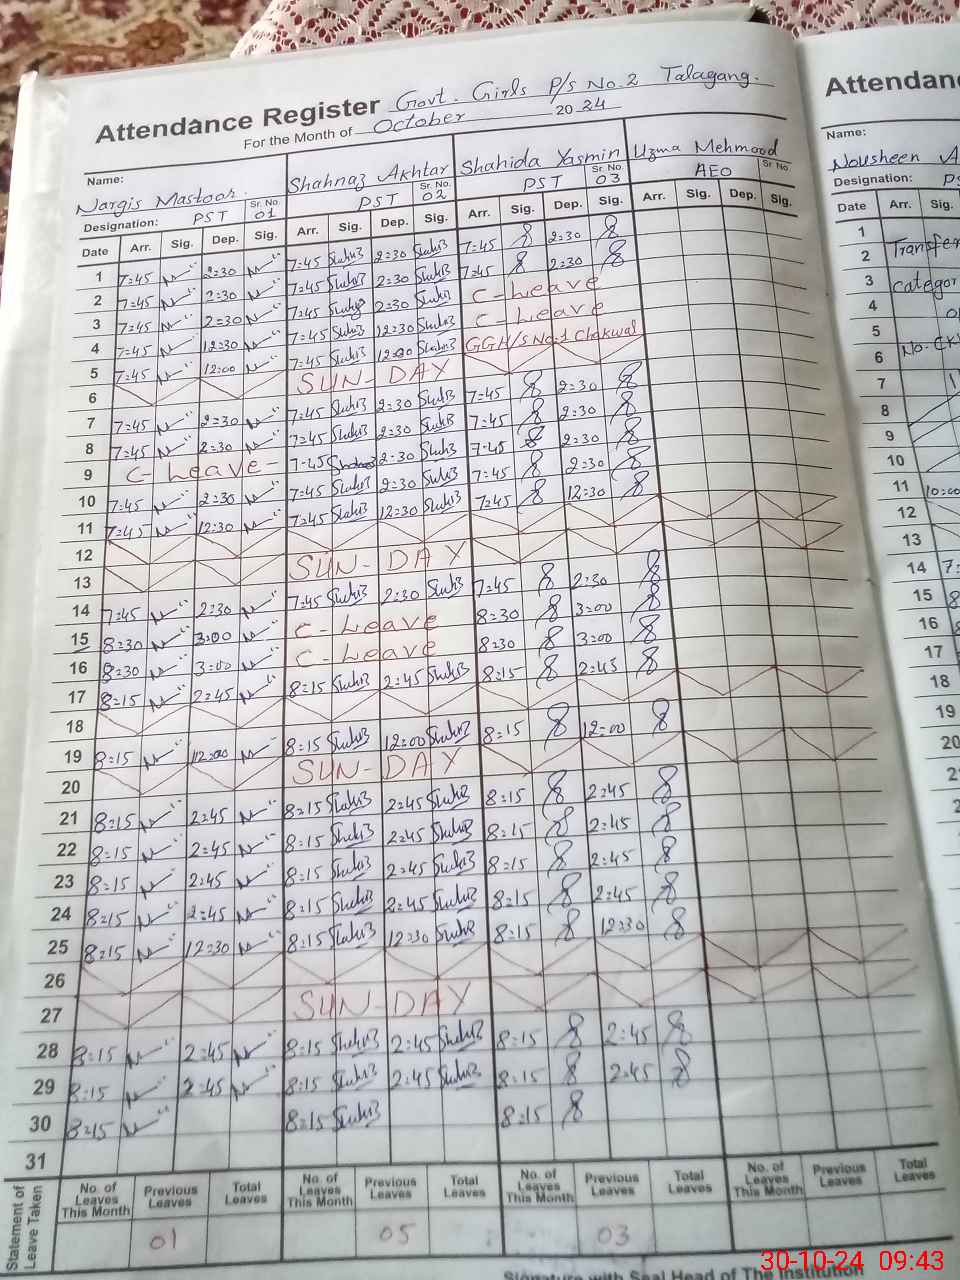 Attendance Register Govt. Girls P/S No.2 Talagang.
For the Month of October 2024
Name: Nargis Mastoor. Shahnaz Akhtar Shahida Yasmin Uzma Mehmood
Designation: PST Sr. No. 01 PST Sr. No. 02 PST Sr. No. 03 AEO Sr No.
Date Arr. Sig. Dep. Sig. Arr. Sig. Dep. Sig. Arr. Sig. Dep. Sig. Arr. Sig. Dep. Sig.
1 7:45 2:30 7:45 2:30 7:45 2:30
2 7:45 2:30 7:45 2:30 7:45 2:30
3 7:45 2:30 7:45 2:30 C-Leave
4 7:45 12:30 7:45 12:30 C-Leave
5 7:45 12:00 7:45 12:00 GGH/S No.1 Chakwal
6 SUN-DAY
7 7:45 2:30 7:45 2:30 7:45 2:30
8 7:45 2:30 7:45 2:30 7:45 2:30
9 C-Leave- 7-45 2-30 7-45 2:30
10 7:45 2:30 7:45 2:30 7:45 2:30
11 7:45 12:30 7:45 12:30 7:45 12:30
12
13 SUN-DAY
14 7:45 2:30 7:45 2:30 7:45 2:30
15 8:30 3:00 C-Leave 8:30 3:00
16 8:30 3:00 C-Leave 8:30 3:00
17 8:15 2:45 8:15 2:45 8:15 2:45
18
19 8:15 12:00 8:15 12:00 8:15 12:00
20 SUN-DAY
21 8:15 2:45 8:15 2:45 8:15 2:45
22 8:15 2:45 8:15 2:45 8:15 2:45
23 8:15 2:45 8:15 2:45 8:15 2:45
24 8:15 2:45 8:15 2:45 8:15 2:45
25 8:15 12:30 8:15 12:30 8:15 12:30
26
27 SUN-DAY
28 8:15 2:45 8:15 2:45 8:15 2:45
29 8:15 2:45 8:15 2:45 8:15 2:45
30 8:15 8:15 8:15
31
Statement of Leave Taken
No. of Leaves This Month Previous Leaves Total Leaves No. of Leaves This Month Previous Leaves Total Leaves No. of Leaves This Month Previous Leaves Total Leaves No. of Leaves This Month Previous Leaves Total Leaves
01 05 03
Signature with Seal Head of The Institution
Attendanc
Name:
Nousheen A
Designation: PS
Date Arr. Sig.
1
2 Transfer
3 categor
4
5
6 No.
7
8
9
10
11 10:00
12
13
14 7:
15 8
16 8
17
18
19
20
30-10-24 09:43